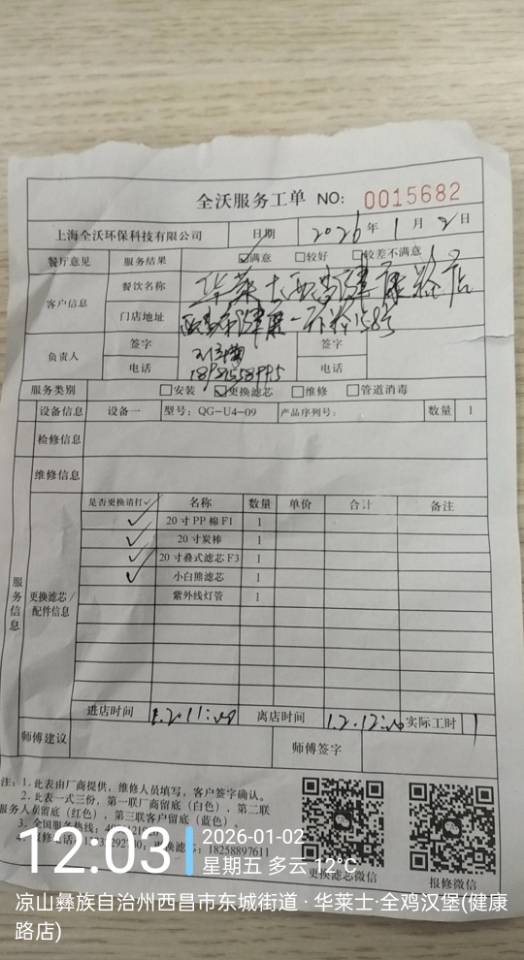 全沃服务工单 NO: 0015682
上海全沃环保科技有限公司 日期 2026年1月2日
餐厅意见 服务结果 ☑满意 □较好 □较差不满意
客户信息 餐饮名称 华莱士西昌健康路店
门店地址
负责人 签字 签字
电话 电话
服务类别 □安装 ☑更换滤芯 □维修 □管道消毒
设备信息 设备一 型号: QG-U4-09 产品序列号: 数量 1
检修信息
维修信息
服务信息
更换滤芯/配件信息
是否更换请打✓ 名称 数量 单价 合计 备注
✓ 20寸PP棉F1 1
✓ 20寸炭棒 1
✓ 20寸叠式滤芯F3 1
✓ 小白熊滤芯 1
紫外线灯管 1
进店时间 1.2.11:00 离店时间 1.2.12:00 实际工时 1
师傅建议 师傅签字
注: 1. 此表由厂商提供, 维修人员填写, 客户签字确认。
2. 此表一式三份, 第一联厂商留底 (白色), 第二联
服务人员留底 (红色), 第三联客户留底 (蓝色)。
3. 全国服务热线:
更换滤芯: 18258897611
更换滤芯微信 报修微信
12:03 2026-01-02
星期五 多云 12℃
凉山彝族自治州西昌市东城街道·华莱士·全鸡汉堡(健康
路店)